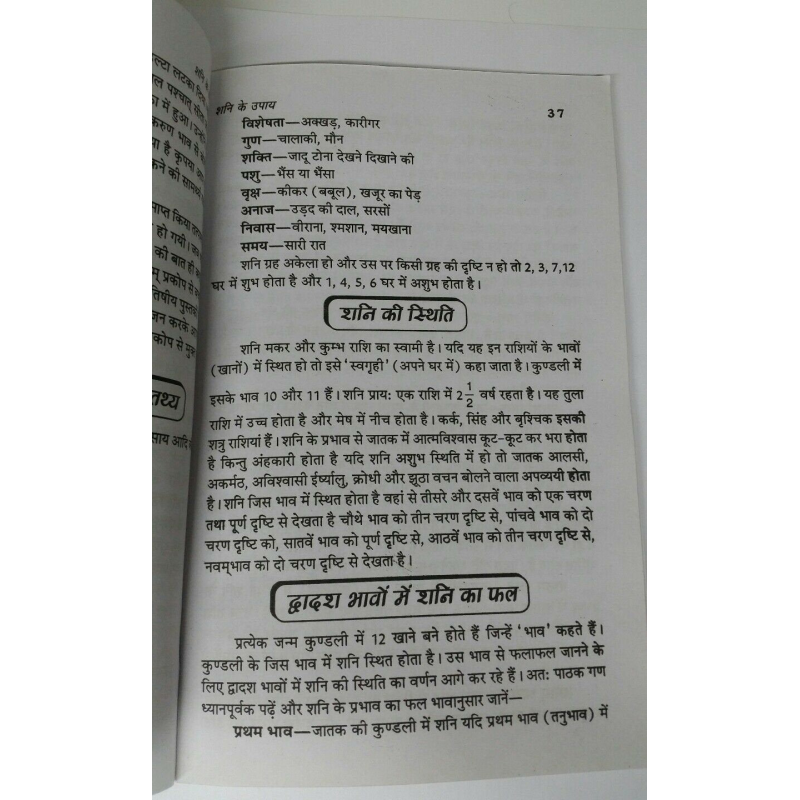 शनि के उपाय
37
विशेषता—अक्खड़, कारीगर
गुण—चालाकी, मौन
शक्ति—जादू टोना देखने दिखाने की
पशु—भैंस या भैंसा
वृक्ष—कीकर (बबूल), खजूर का पेड़
अनाज—उड़द की दाल, सरसों
निवास—वीराना, श्मशान, मयखाना
समय—सारी रात
शनि ग्रह अकेला हो और उस पर किसी ग्रह की दृष्टि न हो तो 2, 3, 7,12
घर में शुभ होता है और 1, 4, 5, 6 घर में अशुभ होता है।
शनि की स्थिति
शनि मकर और कुम्भ राशि का स्वामी है। यदि यह इन राशियों के भावों
(खानों) में स्थित हो तो इसे 'स्वगृही' (अपने घर में) कहा जाता है। कुण्डली में
इसके भाव 10 और 11 हैं। शनि प्राय: एक राशि में 2 1/2 वर्ष रहता है। यह तुला
राशि में उच्च होता है और मेष में नीच होता है। कर्क, सिंह और बृश्चिक इसकी
शत्रु राशियां हैं। शनि के प्रभाव से जातक में आत्मविश्वास कूट-कूट कर भरा होता
है किन्तु अंहकारी होता है यदि शनि अशुभ स्थिति में हो तो जातक आलसी,
अकर्मठ, अविश्वासी ईर्ष्यालु, क्रोधी और झूठा वचन बोलने वाला अपव्ययी होता
है। शनि जिस भाव में स्थित होता है वहां से तीसरे और दसवें भाव को एक चरण
तथा पूर्ण दृष्टि से देखता है चौथे भाव को तीन चरण दृष्टि से, पांचवे भाव को दो
चरण दृष्टि को, सातवें भाव को पूर्ण दृष्टि से, आठवें भाव को तीन चरण दृष्टि से,
नवम्‌भाव को दो चरण दृष्टि से देखता है।
द्वादश भावों में शनि का फल
प्रत्येक जन्म कुण्डली में 12 खाने बने होते हैं जिन्हें 'भाव' कहते हैं।
कुण्डली के जिस भाव में शनि स्थित होता है। उस भाव से फलाफल जानने के
लिए द्वादश भावों में शनि की स्थिति का वर्णन आगे कर रहे हैं। अत: पाठक गण
ध्यानपूर्वक पढ़ें और शनि के प्रभाव का फल भावानुसार जानें—
प्रथम भाव—जातक की कुण्डली में शनि यदि प्रथम भाव (तनुभाव) में